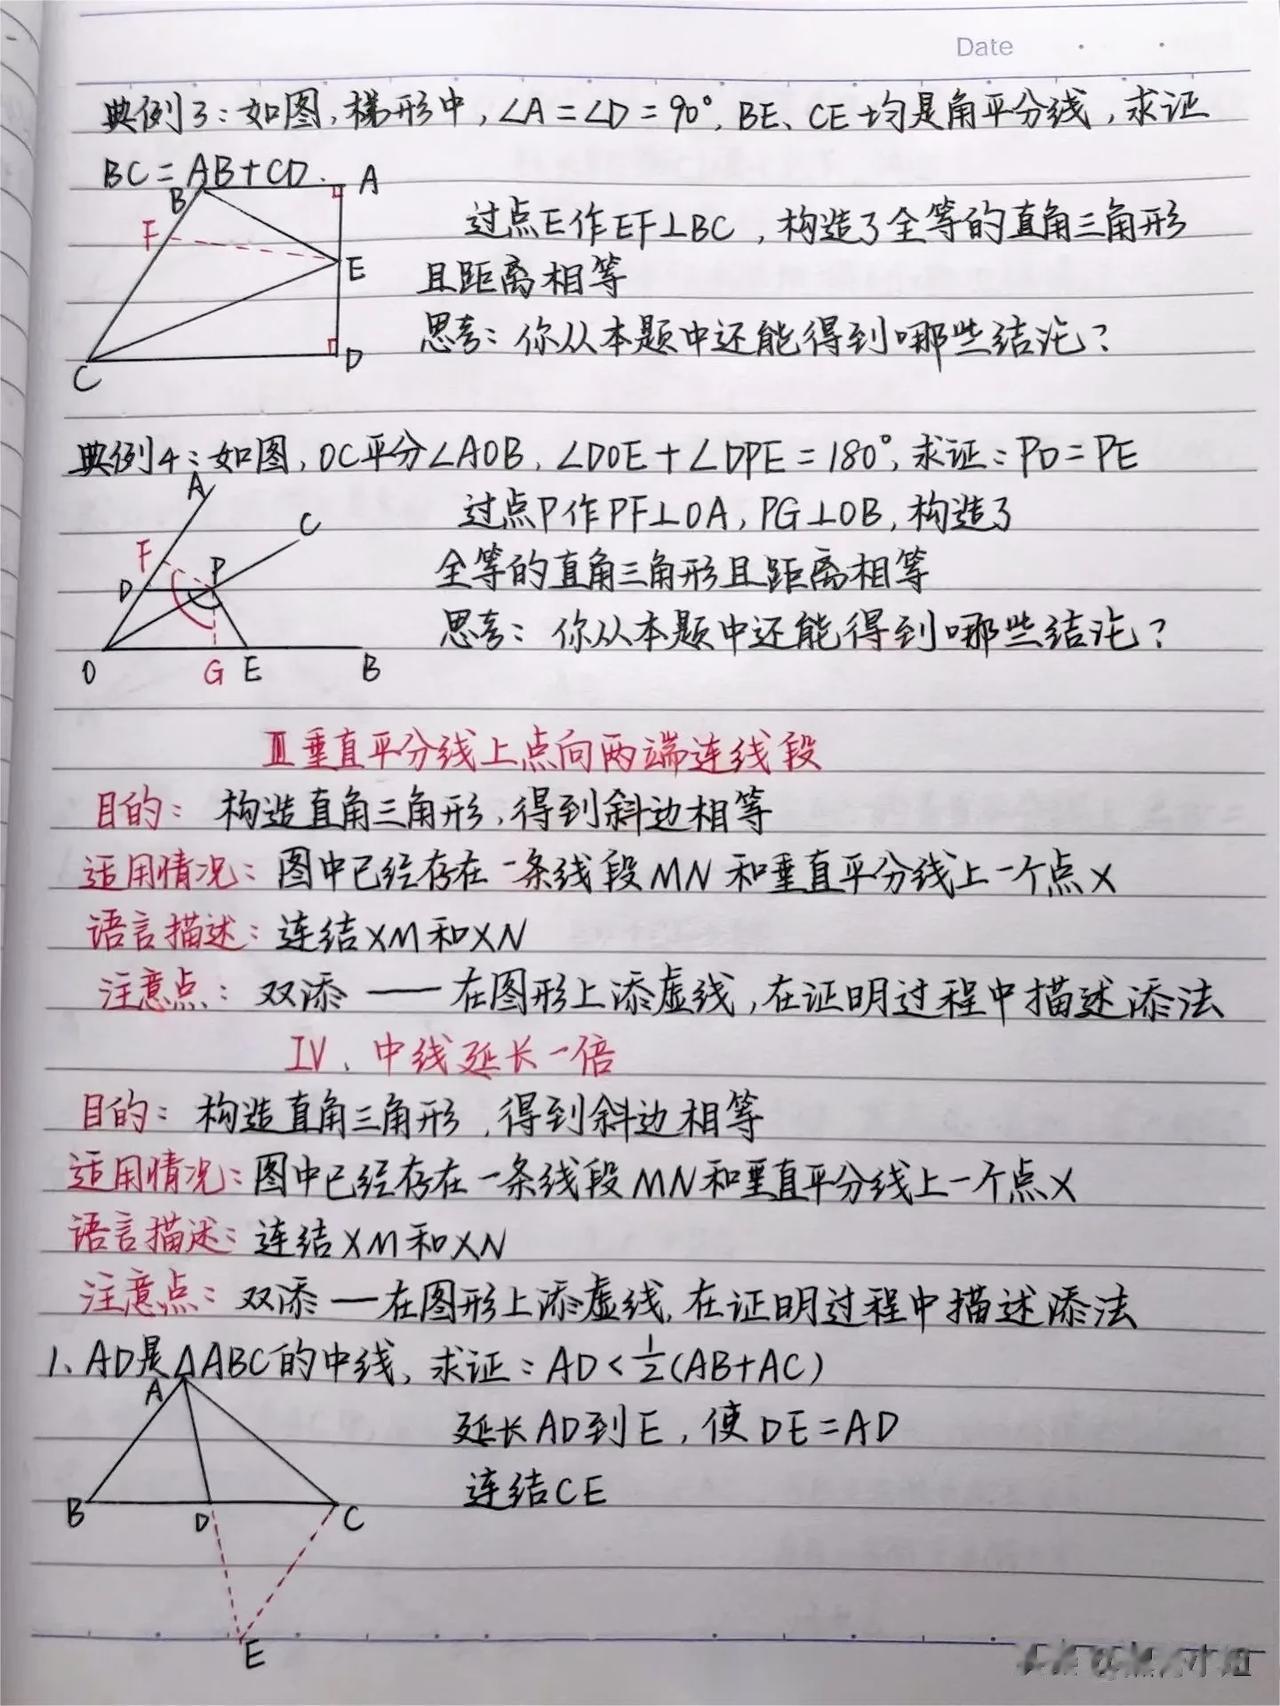 Date
典例3：如图,梯形中,∠A=∠D=90°,BE、CE均是角平分线,求证
BC=AB+CD.
B
A
F
E
C
D
过点E作EF⊥BC,构造了全等的直角三角形
且距离相等
思考：你从本题中还能得到哪些结论？
典例4：如图,OC平分∠AOB,∠DOE+∠DPE=180°,求证：PD=PE
A
C
F
P
D
O
G
E
B
过点P作PF⊥OA,PG⊥OB,构造了
全等的直角三角形且距离相等
思考：你从本题中还能得到哪些结论？
Ⅲ垂直平分线上点向两端连线段
目的：构造直角三角形,得到斜边相等
适用情况：图中已经存在一条线段MN和垂直平分线上一个点X
语言描述：连结XM和XN
注意点：双添——在图形上添虚线,在证明过程中描述添法
Ⅳ、中线延长一倍
目的：构造直角三角形,得到斜边相等
适用情况：图中已经存在一条线段MN和垂直平分线上一个点X
语言描述：连结XM和XN
注意点：双添—在图形上添虚线,在证明过程中描述添法
1、AD是△ABC的中线,求证：AD<½(AB+AC)
A
B
D
C
E
延长AD到E,使DE=AD
连结CE